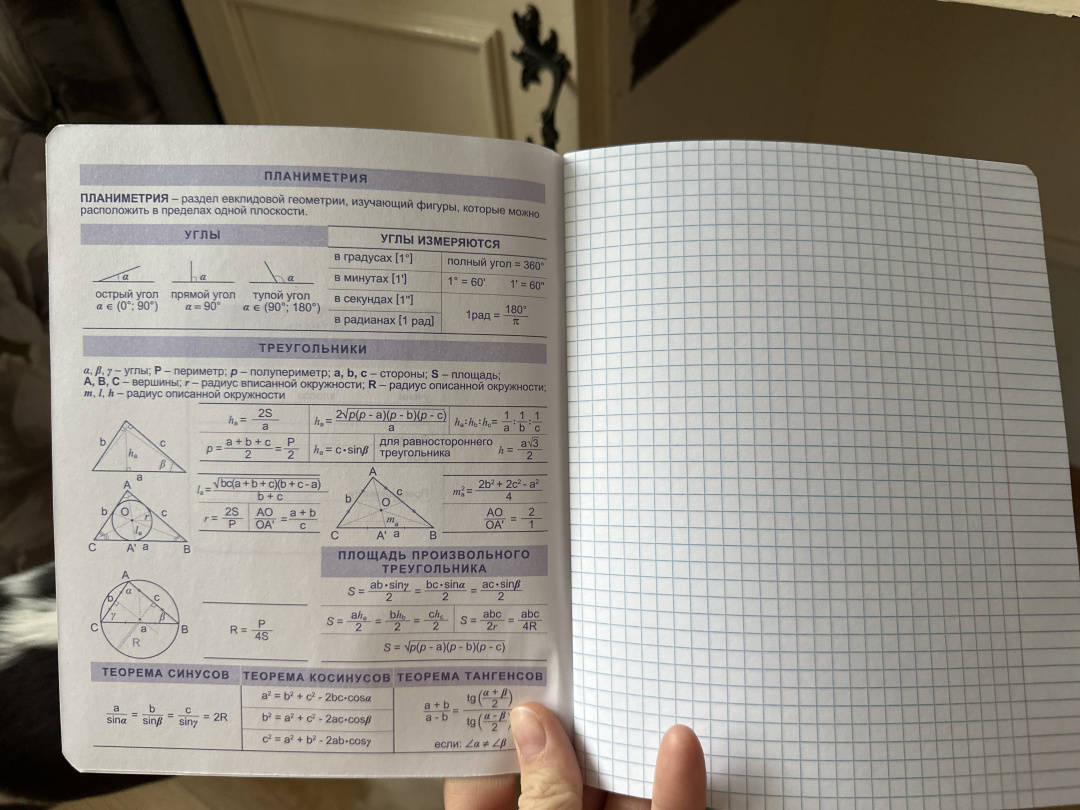 ПЛАНИМЕТРИЯ
ПЛАНИМЕТРИЯ – раздел евклидовой геометрии, изучающий фигуры, которые можно
расположить в пределах одной плоскости.
УГЛЫ
α α α
острый угол прямой угол тупой угол
α ∈ (0°; 90°) α = 90° α ∈ (90°; 180°)
УГЛЫ ИЗМЕРЯЮТСЯ
в градусах [1°] полный угол = 360°
в минутах [1'] 1° = 60' 1' = 60"
в секундах [1"]
в радианах [1 рад] 1рад = 180°/π
ТРЕУГОЛЬНИКИ
α, β, γ – углы; P – периметр; p – полупериметр; a, b, c – стороны; S – площадь;
A, B, C – вершины; r – радиус вписанной окружности; R – радиус описанной окружности;
m, l, h – радиус описанной окружности
b c hₐ β a
hₐ = 2S/a hₐ = 2√p(p - a)(p - b)(p - c)/a hₐ:h_b:h_c = 1/a : 1/b : 1/c
p = a + b + c/2 = P/2 hₐ = c•sinβ для равностороннего
треугольника h = a√3/2
A b O r c lₐ C A' a B
lₐ = √bc(a + b + c)(b + c - a)/b + c
r = 2S/P AO/OA' = a + b/c
A b c O mₐ C A' a B
mₐ² = 2b² + 2c² - a²/4
AO/OA' = 2/1
A α b c C γ β a B R
R = P/4S
ПЛОЩАДЬ ПРОИЗВОЛЬНОГО
ТРЕУГОЛЬНИКА
S = ab•sinγ/2 = bc•sinα/2 = ac•sinβ/2
S = ahₐ/2 = bh_b/2 = ch_c/2 S = abc/2r = abc/4R
S = √p(p - a)(p - b)(p - c)
ТЕОРЕМА СИНУСОВ
a/sinα = b/sinβ = c/sinγ = 2R
ТЕОРЕМА КОСИНУСОВ
a² = b² + c² - 2bc•cosα
b² = a² + c² - 2ac•cosβ
c² = a² + b² - 2ab•cosγ
ТЕОРЕМА ТАНГЕНСОВ
a + b/a - b = tg(α + β/2)/tg(α - β/2)
если: ∠α ≠ ∠β